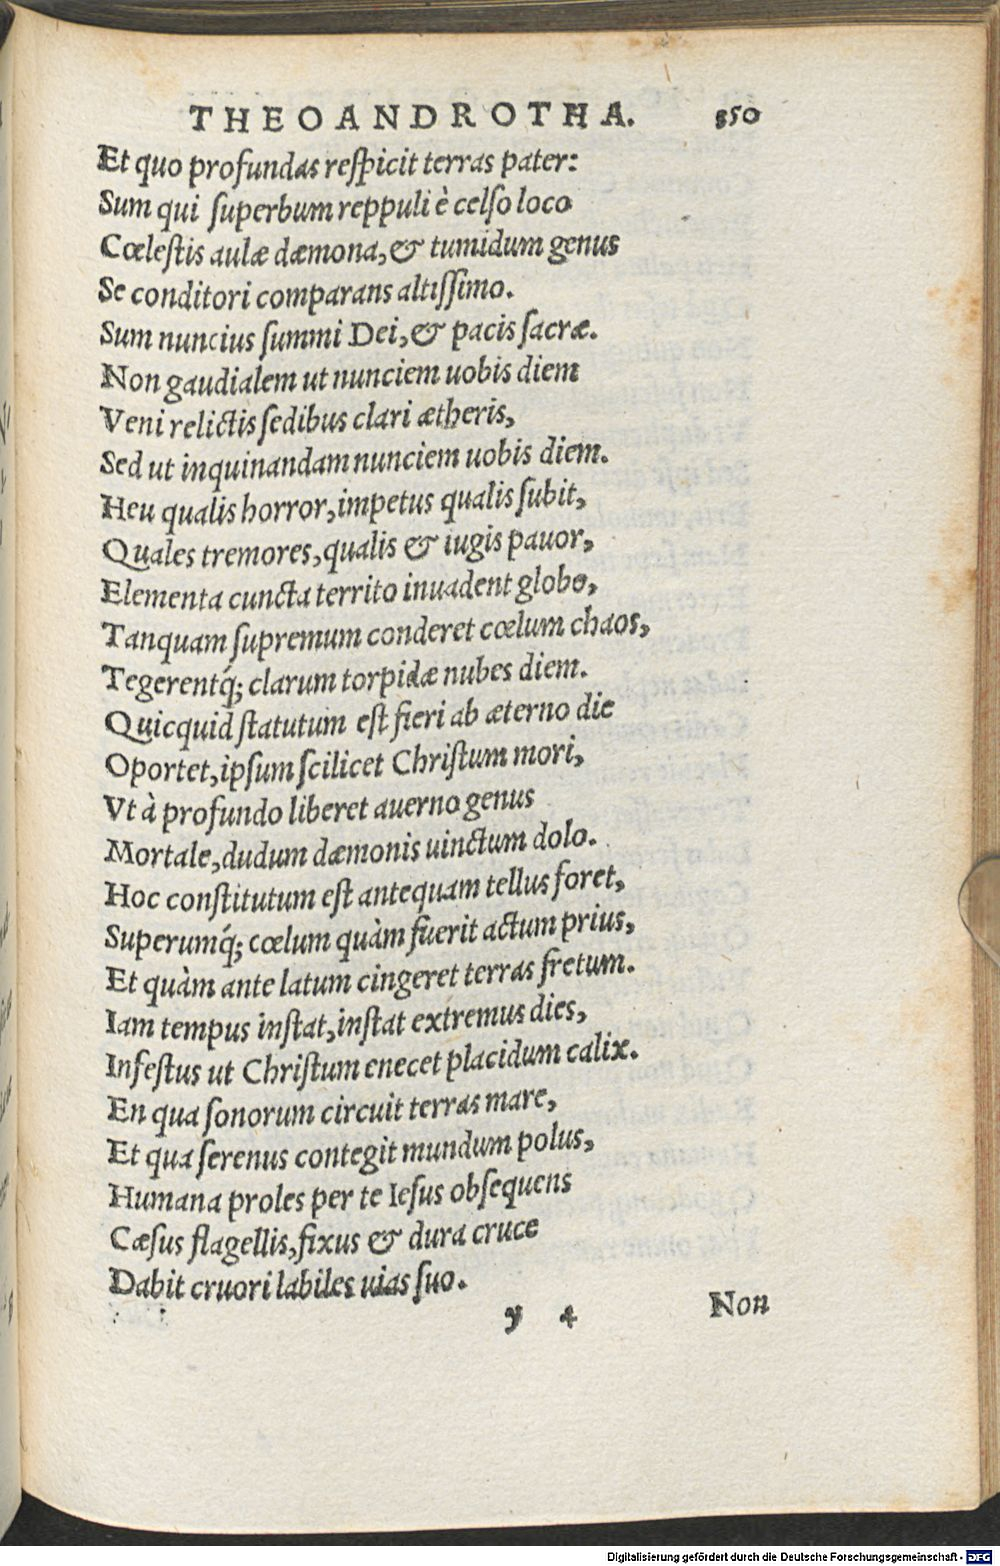 THEOANDROTHA. 850
Et quo profundas reſpicit terras pater:
Sum qui ſuperbum reppuli è celſo loco
Cœleſtis aulæ dæmona, & tumidum genus
Se conditori comparans altiſſimo.
Sum nuncius ſummi Dei, & pacis ſacræ.
Non gaudialem ut nunciem uobis diem
Veni relictis ſedibus clari ætheris,
Sed ut inquinandam nunciem uobis diem.
Heu qualis horror, impetus qualis ſubit,
Quales tremores, qualis & iugis pauor,
Elementa cuncta territo inuadent globo,
Tanquam ſupremum conderet cœlum chaos,
Tegerentq́; clarum torpidæ nubes diem.
Quicquid ſtatutum eſt fieri ab æterno die
Oportet, ipſum ſcilicet Chriſtum mori,
Vt à profundo liberet auerno genus
Mortale, dudum dæmonis uinctum dolo.
Hoc conſtitutum eſt antequam tellus foret,
Superumq́; cœlum quàm fuerit actum prius,
Et quàm ante latum cingeret terras fretum.
Iam tempus inſtat, inſtat extremus dies,
Infeſtus ut Chriſtum enecet placidum calix.
En qua ſonorum circuit terras mare,
Et qua ſerenus contegit mundum polus,
Humana proles per te Ieſus obſequens
Cæſus flagellis, fixus & dura cruce
Dabit cruori labiles uias ſuo.
y 4 Non
Digitalisierung gefördert durch die Deutsche Forschungsgemeinschaft - DFG